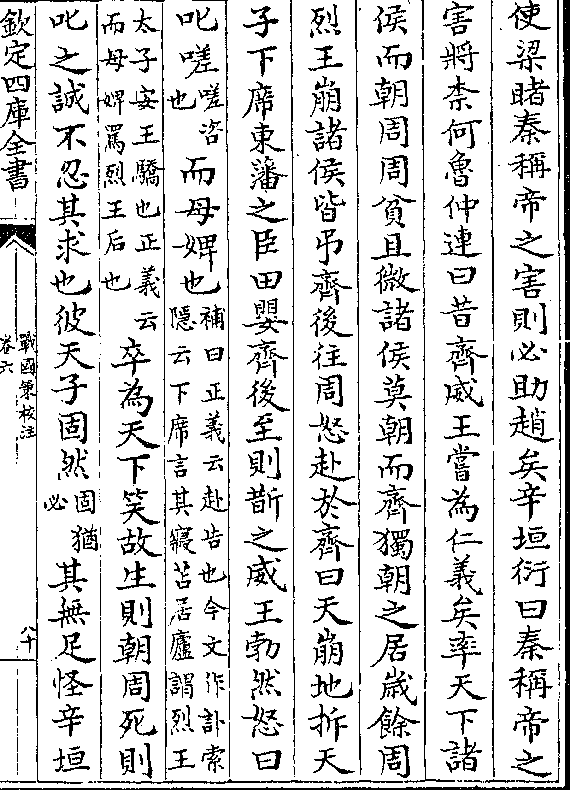 使梁睹秦稱帝之害則必助趙矣辛垣衍曰秦稱帝之
害將柰何魯仲連曰昔齊威王嘗為仁義矣率天下諸
侯而朝周周貧且微諸侯莫朝而齊獨朝之居歲餘周
烈王崩諸侯皆弔齊後往周怒赴於齊曰天崩地拆天
子下席東藩之臣田嬰齊後至則斮之威王勃然怒曰
叱嗟嗟咨也而母婢也補曰正義云赴告也今文作訃索隱云下席言其寢苫居廬謂烈王
太子安王驕也正義云而母婢罵烈王后也卒為天下笑故生則朝周死則
叱之誠不忍其求也彼天子固然固猶必其無足怪辛垣
欽定四庫全書
戰國策校注
卷六
八十